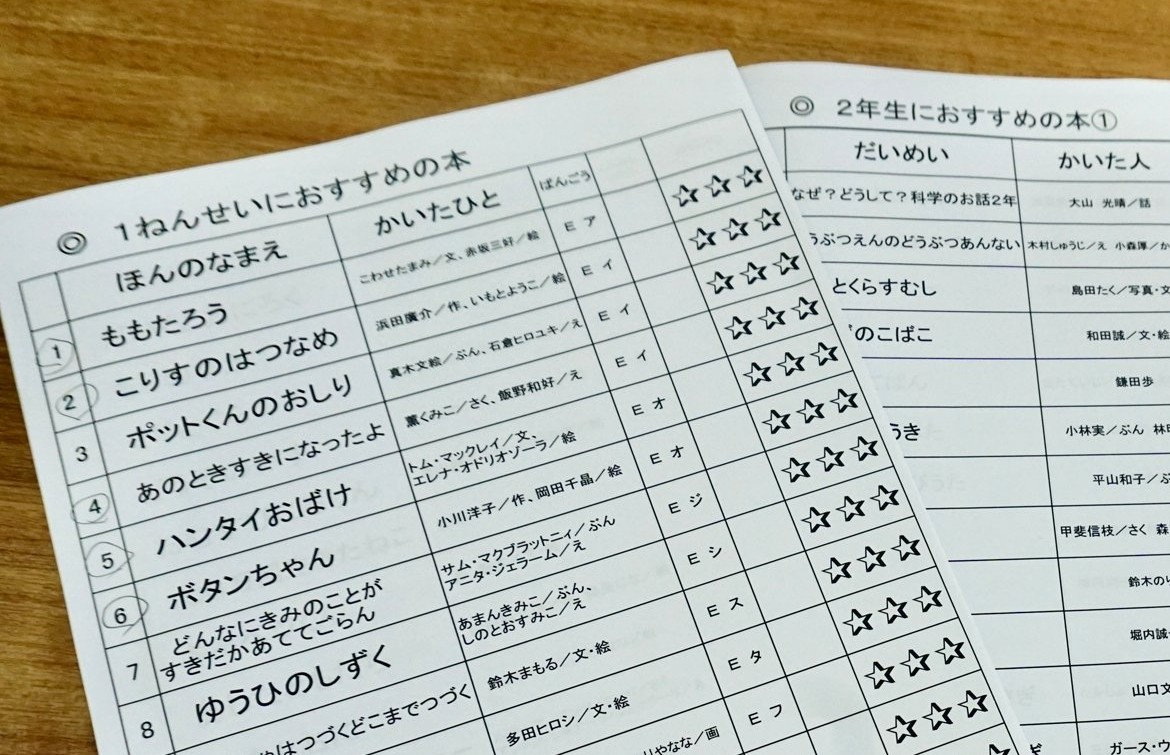 ◎ 1ねんせいにおすすめの本
ほんのなまえ かいたひと ばんごう
1 ももたろう こわせたまみ/文、赤坂三好/絵 E ア ☆☆☆
2 こりすのはつなめ 浜田廣介/作、いもとようこ/絵 E イ ☆☆☆
3 ポットくんのおしり 真木文絵/ぶん、石倉ヒロユキ/え E イ ☆☆☆
4 あのときすきになったよ 薫くみこ/さく、飯野和好/え E イ ☆☆☆
5 ハンタイおばけ トム・マックレイ/文、
エレナ・オドリオゾーラ/絵 E オ ☆☆☆
6 ボタンちゃん 小川洋子/作、岡田千晶/絵 E オ ☆☆☆
7 どんなにきみのことが
すきだかあててごらん サム・マクブラットニィ/ぶん
アニタ・ジェラーム/え E ジ ☆☆☆
8 ゆうひのしずく あまんきみこ/ぶん、
しのとおすみこ/え E シ ☆☆☆
はつづくどこまでつづく 鈴木まもる/文・絵 E ス ☆☆☆
多田ヒロシ/文・絵 E タ ☆☆☆
りやなな/画 E フ ☆☆☆
☆☆☆
◎ 2年生におすすめの本①
だいめい かいた人
なぜ?どうして?科学のお話2年 大山 光晴/話
うぶつえんのどうぶつあんない 木村しゅうじ/え 小森厚/か
とくらすむし 島田たく/写真・文
のこばこ 和田誠/文・絵
鎌田歩
うき 小林実/ぶん 林
平山和子/ぶ
甲斐信枝/さく 森
鈴木のり
堀内誠
山口文
ガース・ウ